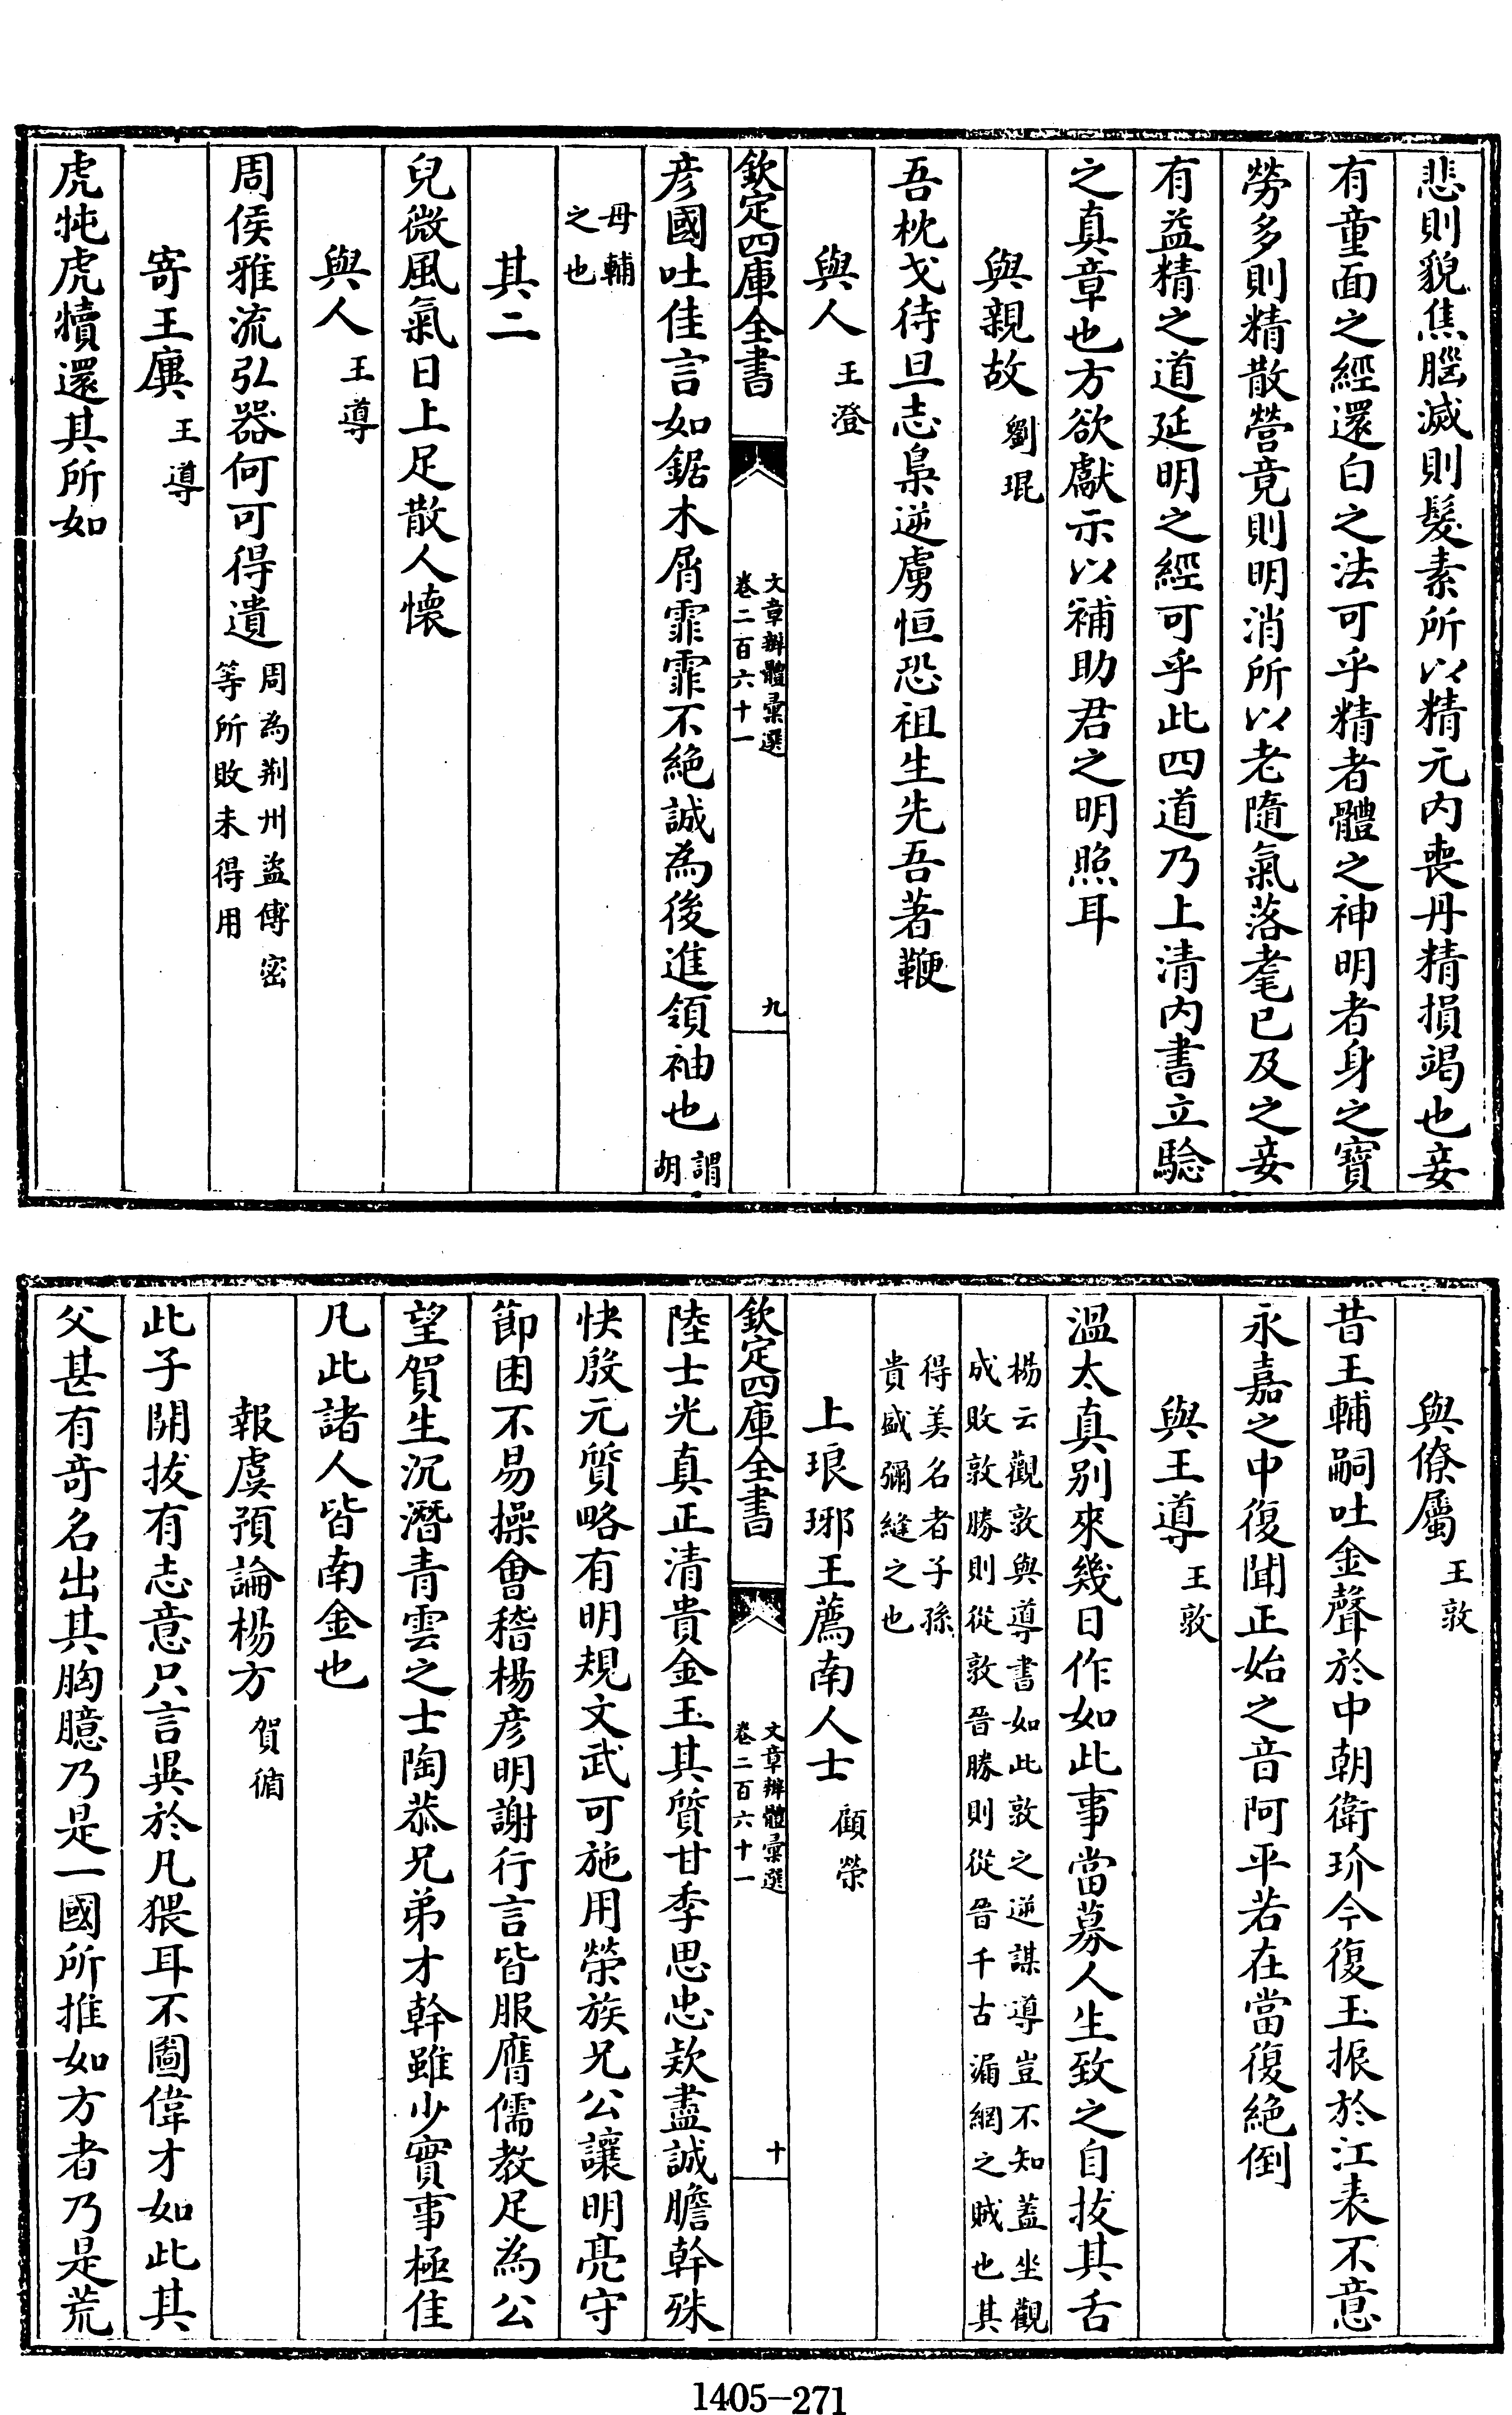 悲則貌焦腦滅則髮素所以精元內喪丹精損竭也妾
有童面之經還白之法可乎精者體之神明者身之寶
勞多則精散營竟則明消所以老隨氣落耄已及之妾
有益精之道延明之經可乎此四道乃上清內書立騐
之真章也方欲獻示以補助君之明照耳
與親故 劉琨
吾枕戈待旦志梟逆虜恒恐祖生先吾著鞭
與人 王澄
欽定四庫全書 文章辨體彙選 卷二百六十一 九
彥國吐佳言如鋸木屑霏霏不絶誠為後進領袖也 謂胡
母輔之也
其二
兒微風氣日上足散人懐
與人 王導
周侯雅流弘器何可得遺 周為荆州盜傅密等所敗未得用
寄王廙 王導
虎㹠虎犢還其所如
與僚屬 王敦
昔王輔嗣吐金聲於中朝衛玠今復玉振於江表不意
永嘉之中復聞正始之音阿平若在當復絶倒
與王導 王敦
溫太真别來幾日作如此事當募人生致之自拔其舌
楊云觀敦與導書如此敦之逆謀導豈不知蓋坐觀
成敗敦勝則從敦晉勝則從晉千古漏網之賊也其
得美名者子孫
貴盛彌縫之也
上琅琊王薦南人士 顧榮
欽定四庫全書 文章辨體彙選 卷二百六十一 十
陸士光真正清貴金玉其質甘季思忠欵盡誠膽幹殊
快殷元質略有明規文武可施用榮族兄公讓明亮守
節困不易操會稽楊彥明謝行言皆服膺儒教足為公
望賀生沉潛青雲之士陶恭兄弟才幹雖少實事極佳
凡此諸人皆南金也
報虞預論楊方 賀循
此子開拔有志意只言異於凡猥耳不圖偉才如此其
父甚有奇名出其胸臆乃是一國所推如方者乃是荒
1405-271